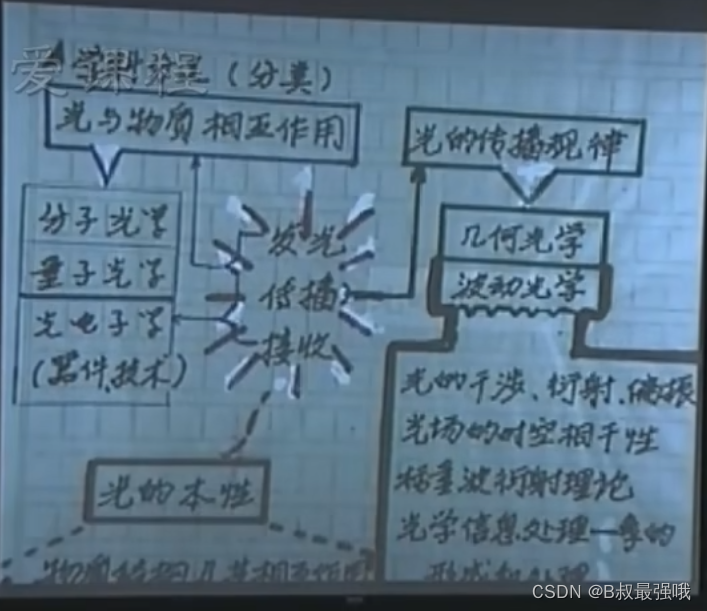 爱课程
(分类)
光与物质相互作用
光的传播规律
分子光学
量子光学
光电子学
(器件、技术)
发光
传播
接收
几何光学
波动光学
光的干涉、衍射、偏振
光场的时空相干性
标量波衍射理论
光学信息处理—象的
形成和处理
光的本性
物质结构及其相互作用
CSDN @B叔最强哦